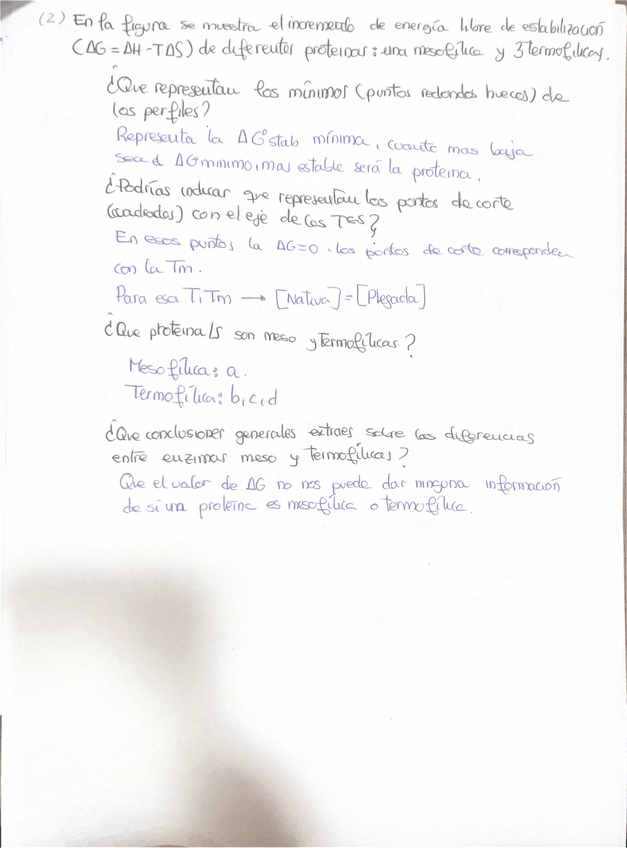 (2) En la figura se muestra el incremento de energía libre de estabilización
(ΔG = ΔH - TΔS) de diferentes proteinas: una mesofílica y 3 termofilicas.
¿Que representan los mínimos (puntos redondos huecos) de
los perfiles?
Representa la ΔG°stab mínima, cuante mas baja
sea el ΔG minimo, mas estable será la proteina.
¿Podrías indicar que representan los puntos de corte
(cuadrados) con el eje de las Tas?
En esos puntos, la ΔG=0. Los puntos de corte corresponden
con la Tm.
Para esa T, Tm → [Nativa] = [Plegada]
¿Que proteina/s son meso y termofílicas?
Mesofílica: a.
Termofílica: b, c, d
¿Que conclusiones generales extraes sobre las diferencias
entre enzimas meso y termofílicas?
Que el valor de ΔG no nos puede dar ninguna información
de si una proteína es mesofílica o termofílica.